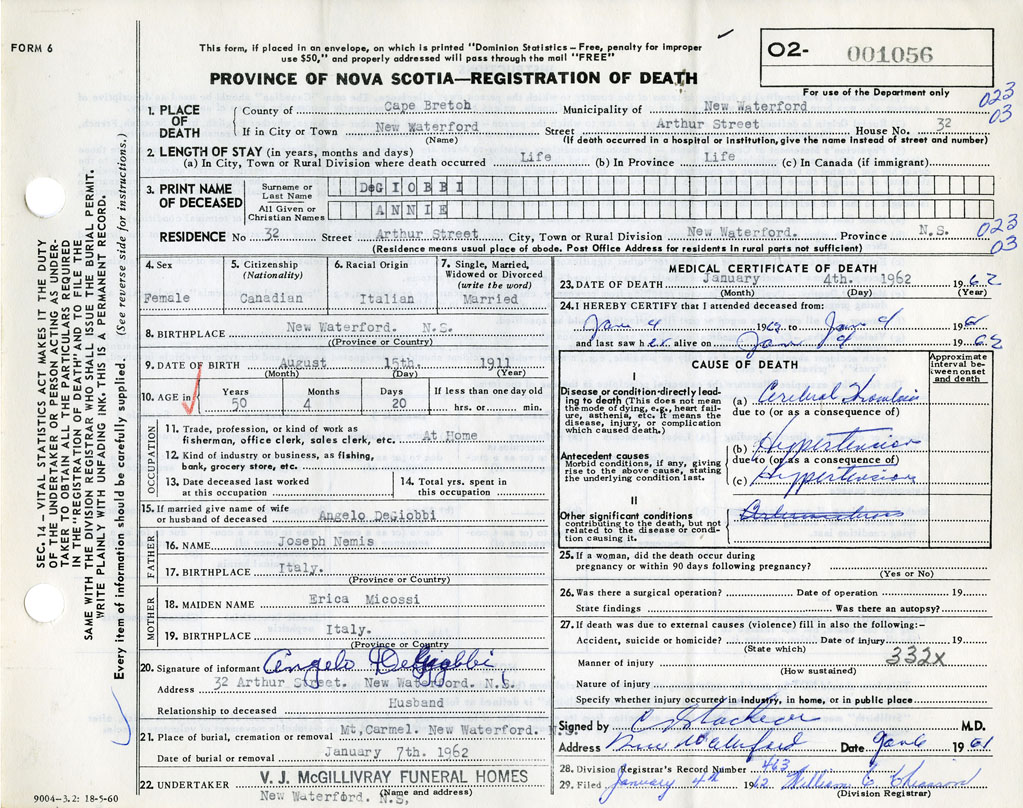 FORM 6
This form, if placed in an envelope, on which is printed "Dominion Statistics – Free, penalty for improper
use $50," and properly addressed will pass through the mail "FREE"
PROVINCE OF NOVA SCOTIA—REGISTRATION OF DEATH
O2- 001056
For use of the Department only
SEC. 14 – VITAL STATISTICS ACT MAKES IT THE DUTY
OF THE UNDERTAKER OR PERSON ACTING AS UNDER-
TAKER TO OBTAIN ALL THE PARTICULARS REQUIRED
IN THE "REGISTRATION OF DEATH" AND TO FILE THE
SAME WITH THE DIVISION REGISTRAR WHO SHALL ISSUE THE BURIAL PERMIT.
WRITE PLAINLY WITH UNFADING INK. THIS IS A PERMANENT RECORD.
Every item of information should be carefully supplied. (See reverse side for instructions.)
1. PLACE OF DEATH
County of Cape Breton Municipality of New Waterford 023
If in City or Town New Waterford Street Arthur Street House No. 32 03
(Name) (If death occurred in a hospital or institution, give the name instead of street and number)
2. LENGTH OF STAY (in years, months and days)
(a) In City, Town or Rural Division where death occurred Life (b) In Province Life (c) In Canada (if immigrant)
3. PRINT NAME OF DECEASED
Surname or Last Name DeGIOBBI
All Given or Christian Names ANNIE
RESIDENCE No 32 Street Arthur Street City, Town or Rural Division New Waterford. Province N.S. 023
(Residence means usual place of abode. Post Office Address for residents in rural parts not sufficient) 03
4. Sex
Female
5. Citizenship (Nationality)
Canadian
6. Racial Origin
Italian
7. Single, Married, Widowed or Divorced (write the word)
Married
8. BIRTHPLACE New Waterford. N.S.
(Province or Country)
9. DATE OF BIRTH August 15th. 1911
(Month) (Day) (Year)
10. AGE in Years Months Days If less than one day old
50 4 20 hrs. or min.
OCCUPATION
11. Trade, profession, or kind of work as
fisherman, office clerk, sales clerk, etc. At Home
12. Kind of industry or business, as fishing,
bank, grocery store, etc.
13. Date deceased last worked
at this occupation
14. Total yrs. spent in
this occupation
15. If married give name of wife
or husband of deceased Angelo DeGiobbi
FATHER
16. NAME Joseph Nemis
17. BIRTHPLACE Italy.
(Province or Country)
MOTHER
18. MAIDEN NAME Erica Micossi
19. BIRTHPLACE Italy.
(Province or Country)
20. Signature of informant Angelo DeGiobbi
Address 32 Arthur Street. New Waterford. N.S.
Relationship to deceased Husband
21. Place of burial, cremation or removal Mt, Carmel. New Waterford. N.S.
Date of burial or removal January 7th. 1962
22. UNDERTAKER V. J. McGILLIVRAY FUNERAL HOMES
(Name and address)
New Waterford. N.S,
9004–3.2: 18-5-60
MEDICAL CERTIFICATE OF DEATH
23. DATE OF DEATH January 4th. 1962 1962
(Month) (Day) (Year)
24. I HEREBY CERTIFY that I attended deceased from:
Jan 4 1962 to Jan 4 1962
and last saw her alive on Jan 4 1962
CAUSE OF DEATH
Approximate interval between onset and death
I
Disease or condition directly lead-
ing to death (This does not mean
the mode of dying, e.g., heart fail-
ure, asthenia, etc. It means the
disease, injury, or complication
which caused death.)
(a) Cerebral Thrombosis
due to (or as a consequence of)
Antecedent causes
Morbid conditions, if any, giving
rise to the above cause, stating
the underlying condition last.
(b) Hypertension
due to (or as a consequence of)
(c) Hypertension
II
Other significant conditions
contributing to the death, but not
related to the disease or condi-
tion causing it.
25. If a woman, did the death occur during
pregnancy or within 90 days following pregnancy?
(Yes or No)
26. Was there a surgical operation? Date of operation 19
State findings Was there an autopsy?
27. If death was due to external causes (violence) fill in also the following:–
Accident, suicide or homicide? Date of injury 19
(State which)
332x
Manner of injury
(How sustained)
Nature of injury
Specify whether injury occurred in industry, in home, or in public place
Signed by M.D.
Address New Waterford Date Jan 6 1961
28. Division Registrar's Record Number 463
29. Filed January 4th 1962 William C Chiasson
(Division Registrar)